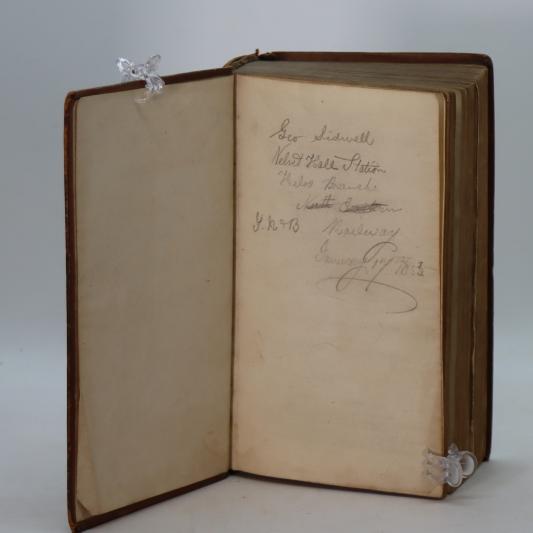 Geo Sidwell
Velvet Hall Station
Kelso Branch
North Eastern
Y. N & B Railway
January